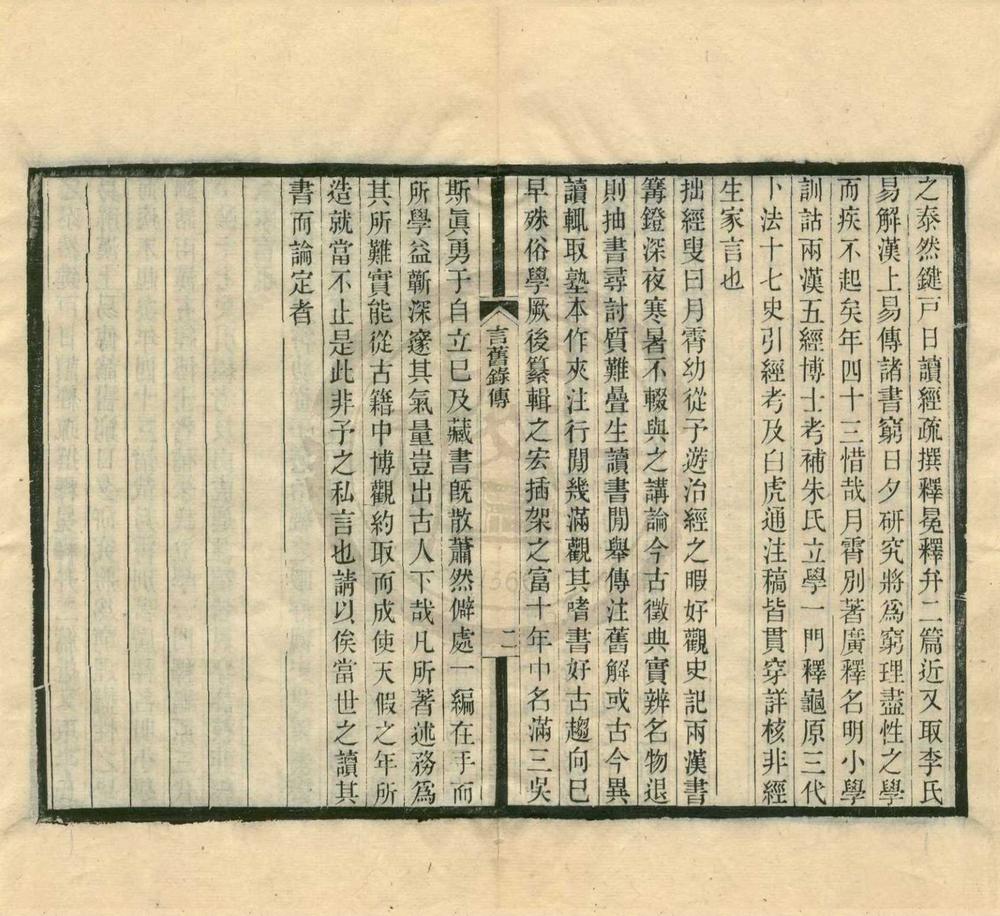 之泰然鍵戸日讀經疏撰釋冕釋弁二篇近又取李氏
易解漢上易傳諸書窮日夕研究將爲窮理盡性之學
而疾不起矣年四十三惜哉月霄別著廣釋名明小學
訓詁兩漢五經博士考補朱氏立學一門釋龜原三代
卜法十七史引經考及白虎通注稿皆貫穿詳核非經
生家言也
拙經叟曰月霄幼從予遊治經之暇好觀史記兩漢書
篝鐙深夜寒暑不輟與之講論今古徵典實辨名物退
則抽書尋討質難疊生讀書閒舉傳注舊解或古今異
讀輒取塾本作夾注行閒幾滿觀其嗜書好古趨向巳
早殊俗學厥後纂輯之宏插架之富十年中名滿三吳
言舊錄傳
二
斯眞勇于自立巳及藏書旣散蕭然僻處一編在手而
所學益蘄深邃其氣量豈出古人下哉凡所著述務爲
其所難實能從古籍中博觀約取而成使天假之年所
造就當不止是此非予之私言也請以俟當世之讀其
書而論定者